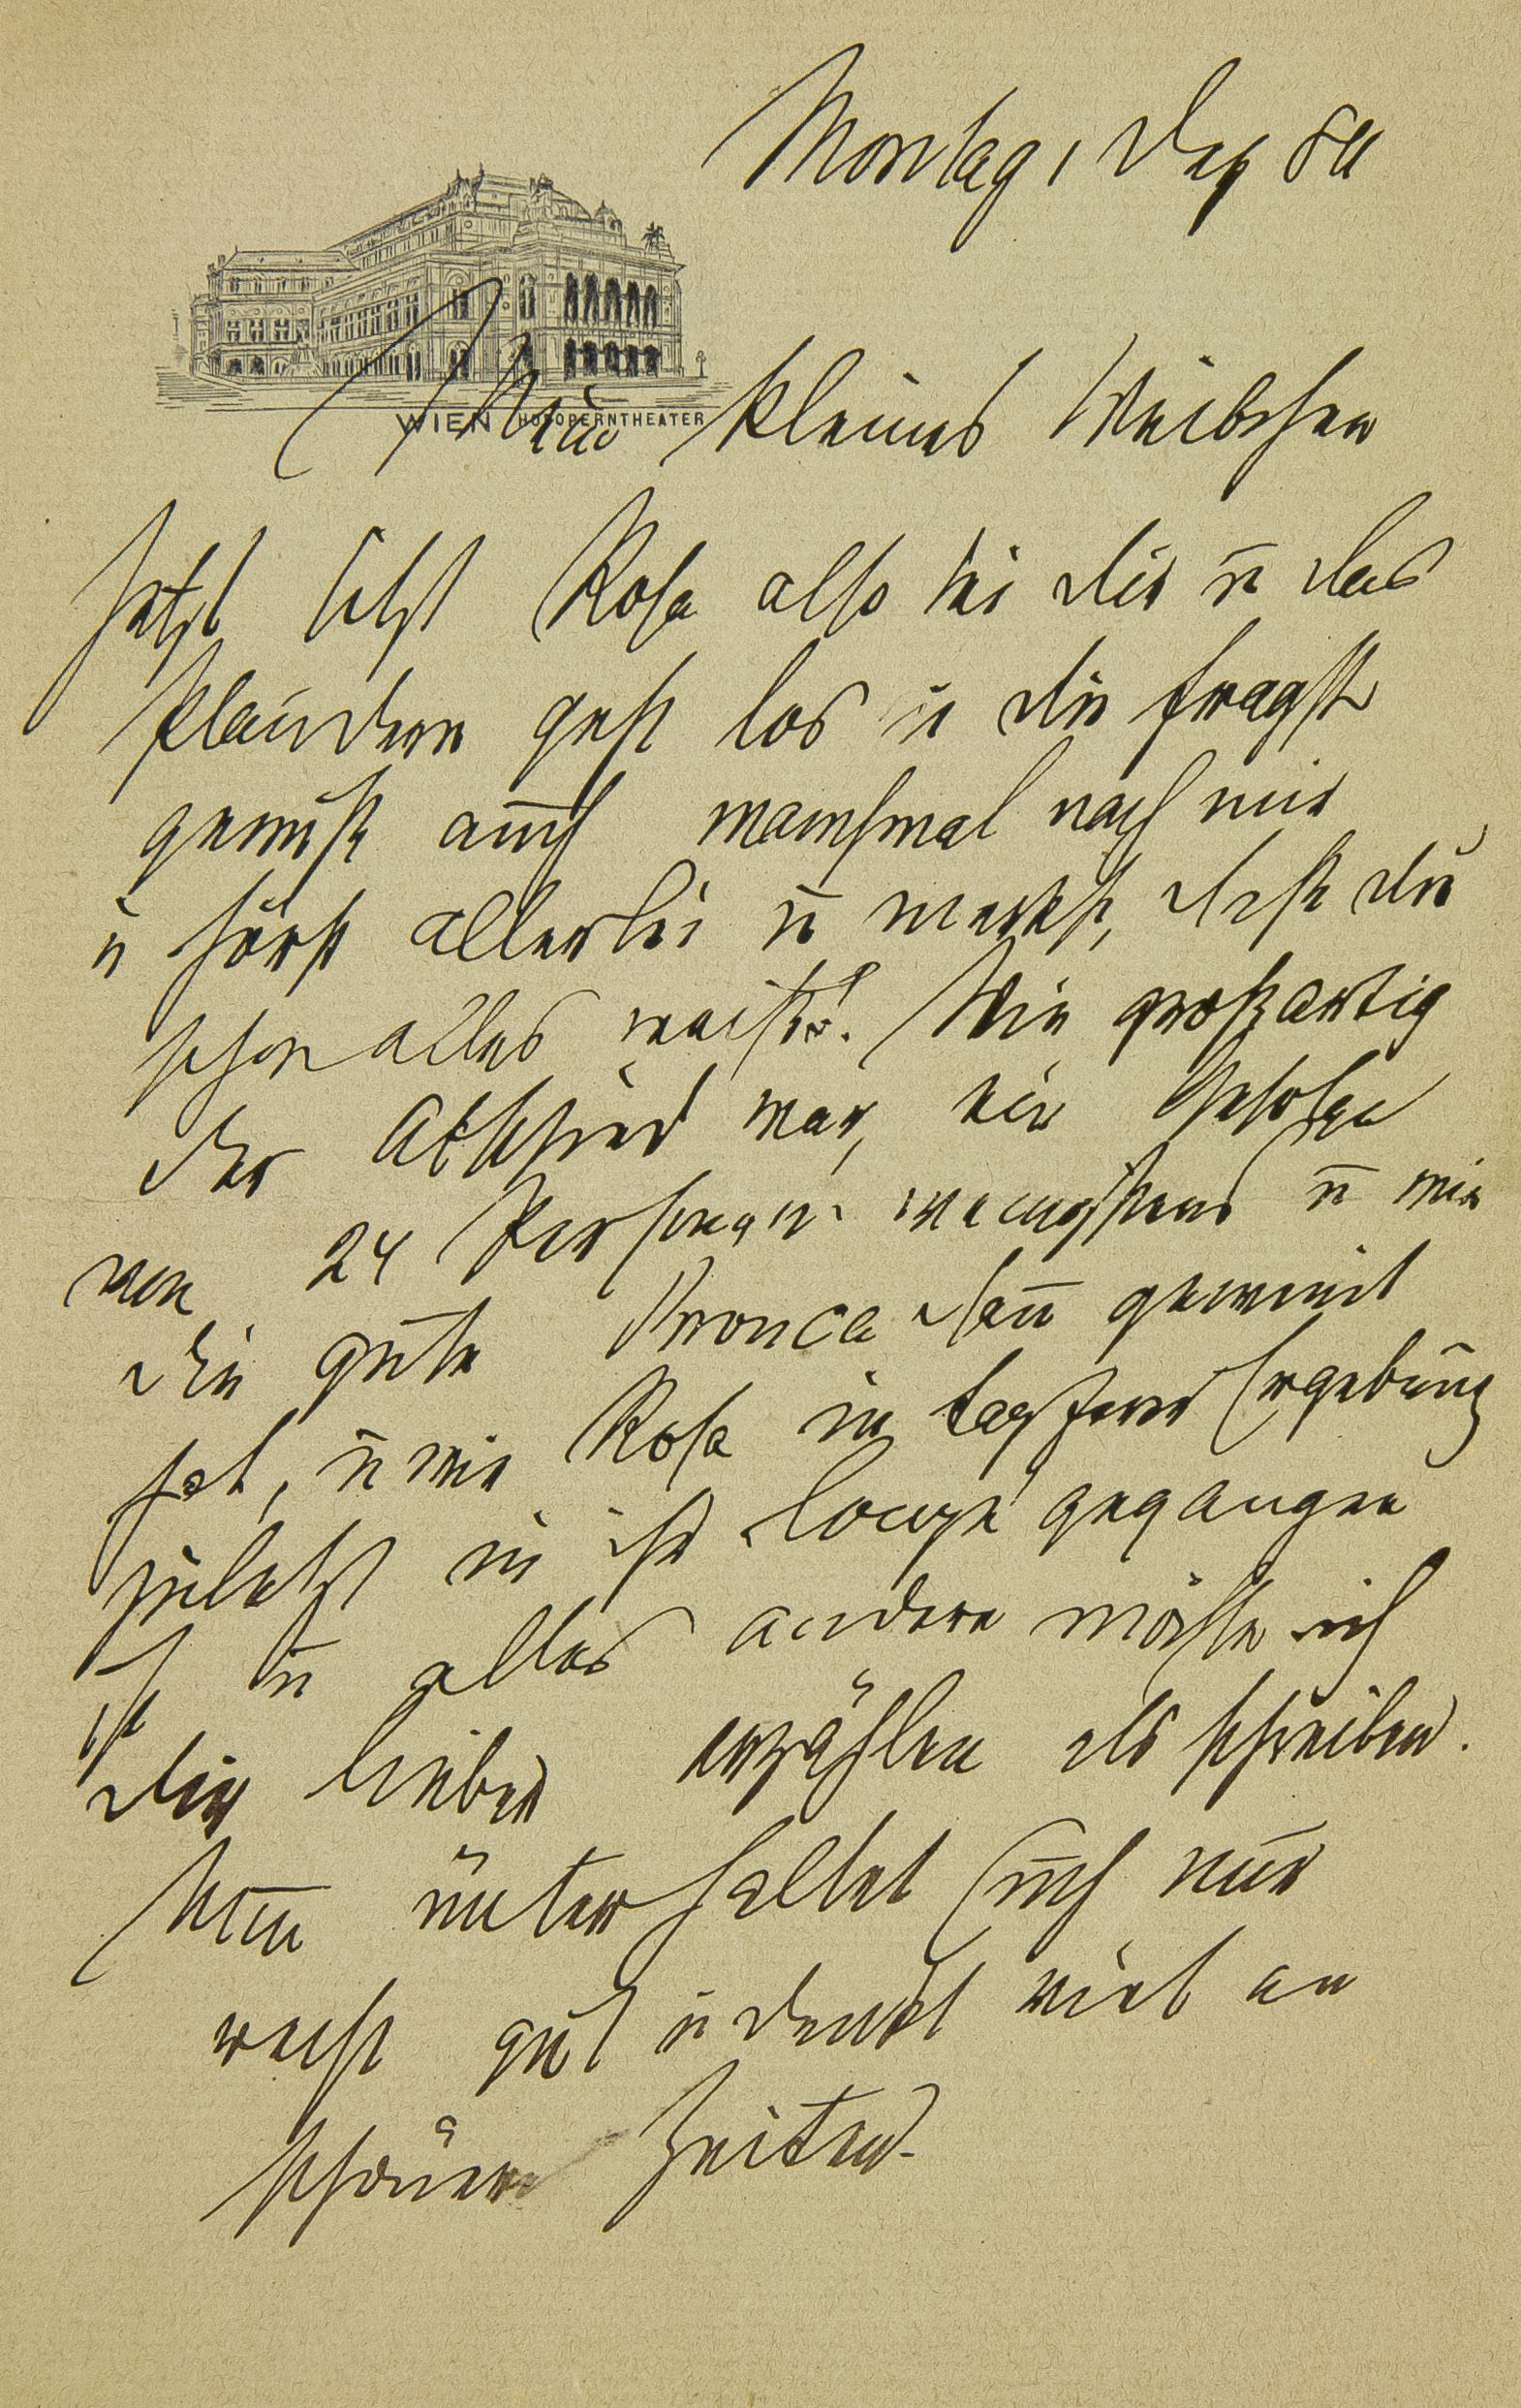 Montag, den 8ten
WIEN HOFOPERNTHEATER
Mein kleines Weibchen
Jetzt sitzt Rosa also bei dir u das
Plaudern geht los u du fragst
gewiß auch manchmal nach mir
u hörst allerlei u merkst, daß du
schon alles weißt. Wie großartig
der Abschied war, ein Gefolge
von 24 Personen wenigstens u wie
die gute dann geweint
hat, u wie Rosa in tapferer Ergebung
zuletzt in ihr Coupé gegangen
ist u alles andere möchte ich
dir lieber erzählen als schreiben.
Nun unterhaltet Euch nur
recht gut u denkt viel an
schönere Zeiten.